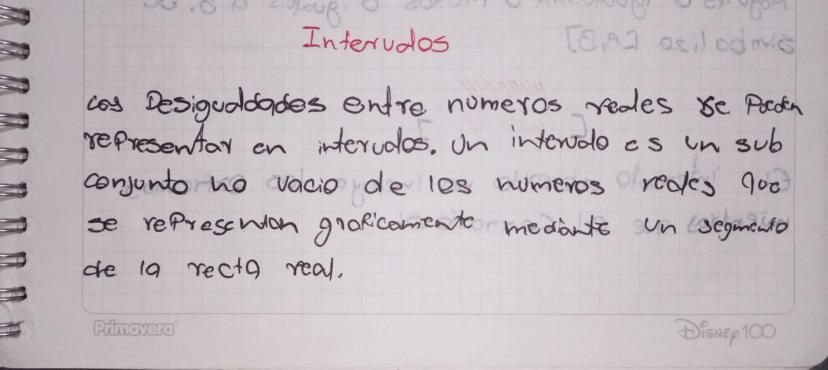 Intervalos
Las Desigualdades entre numeros reales se Pueden
representar en intervalos. Un intervalo es un sub
conjunto no vacio de los numeros reales que
se representan graficamente mediante un segmento
de la recta real.
Primavera
DISNEY100